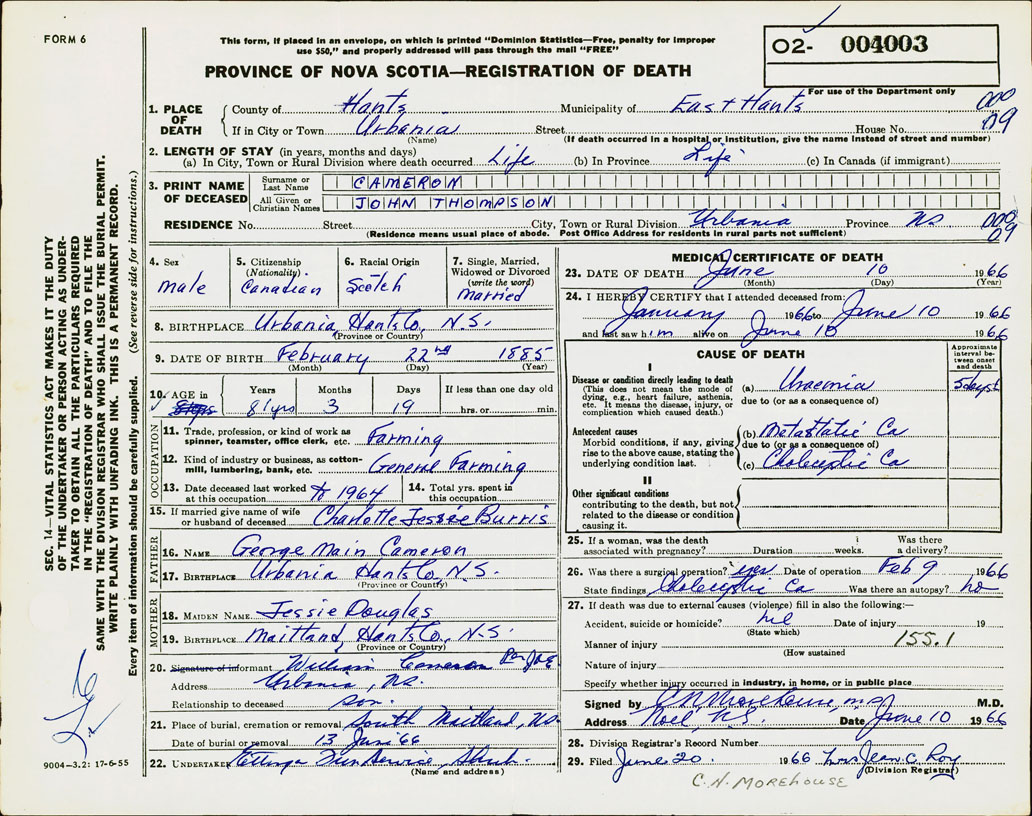 FORM 6
This form, if placed in an envelope, on which is printed "Dominion Statistics—Free, penalty for improper
use $50," and properly addressed will pass through the mail "FREE"
PROVINCE OF NOVA SCOTIA—REGISTRATION OF DEATH
02- 004003
For use of the Department only
1. PLACE OF DEATH
County of Hants Municipality of East Hants 000
If in City or Town Urbania Street House No. 09
(Name) (If death occurred in a hospital or institution, give the name instead of street and number)
2. LENGTH OF STAY (in years, months and days)
(a) In City, Town or Rural Division where death occurred Life (b) In Province Life (c) In Canada (if immigrant)
3. PRINT NAME OF DECEASED
Surname or Last Name CAMERON
All Given or Christian Names JOHN THOMPSON
RESIDENCE No. Street City, Town or Rural Division Urbania Province NS 009
(Residence means usual place of abode. Post Office Address for residents in rural parts not sufficient) 09
4. Sex male
5. Citizenship (Nationality) Canadian
6. Racial Origin Scotch
7. Single, Married, Widowed or Divorced (write the word) Married
8. BIRTHPLACE Urbania, Hants Co, N.S.
(Province or Country)
9. DATE OF BIRTH February 22nd 1885
(Month) (Day) (Year)
10. AGE in Years Months Days If less than one day old
81 yrs 3 19 hrs. or min.
OCCUPATION
11. Trade, profession, or kind of work as spinner, teamster, office clerk, etc. Farming
12. Kind of industry or business, as cotton-mill, lumbering, bank, etc. General Farming
13. Date deceased last worked at this occupation to 1964
14. Total yrs. spent in this occupation
15. If married give name of wife or husband of deceased Charlotte Jessie Burris
FATHER
16. NAME George Main Cameron
17. BIRTHPLACE Urbania Hants Co, N.S.
(Province or Country)
MOTHER
18. MAIDEN NAME Jessie Douglas
19. BIRTHPLACE Maitland, Hants Co, N.S.
(Province or Country)
20. Signature of informant William Cameron
Address Urbania, N.S.
Relationship to deceased son.
21. Place of burial, cremation or removal South Maitland, N.S.
Date of burial or removal 13 June '66
22. UNDERTAKER Ettinger
(Name and address)
MEDICAL CERTIFICATE OF DEATH
23. DATE OF DEATH June 10 1966
(Month) (Day) (Year)
24. I HEREBY CERTIFY that I attended deceased from:
January 1966 to June 10 1966
and last saw him alive on June 10 1966
CAUSE OF DEATH
Approximate interval between onset and death
I
Disease or condition directly leading to death (a) Uraemia 5 days
(This does not mean the mode of dying, e.g., heart failure, asthenia, etc. It means the disease, injury, or complication which caused death.)
due to (or as a consequence of)
Antecedent causes (b) Metastatic Ca
Morbid conditions, if any, giving rise to the above cause, stating the underlying condition last.
due to (or as a consequence of)
(c) Ca
II
Other significant conditions
contributing to the death, but not related to the disease or condition causing it.
25. If a woman, was the death associated with pregnancy? Duration weeks. Was there a delivery?
26. Was there a surgical operation? yes Date of operation Feb 9 1966
State findings Ca Was there an autopsy? no
27. If death was due to external causes (violence) fill in also the following:—
Accident, suicide or homicide? nil Date of injury 19
(State which)
Manner of injury 155.1
(How sustained)
Nature of injury
Specify whether injury occurred in industry, in home, or in public place
Signed by C N Morehouse, M.D.
Address Noel, N.S. Date June 10 1966
28. Division Registrar's Record Number
29. Filed June 20 1966 Mrs Jean C. Roy
(Division Registrar)
C. N. MOREHOUSE
SEC. 14—VITAL STATISTICS ACT MAKES IT THE DUTY
OF THE UNDERTAKER OR PERSON ACTING AS UNDER-
TAKER TO OBTAIN ALL THE PARTICULARS REQUIRED
IN THE "REGISTRATION OF DEATH" AND TO FILE THE
SAME WITH THE DIVISION REGISTRAR WHO SHALL ISSUE THE BURIAL PERMIT.
WRITE PLAINLY WITH UNFADING INK. THIS IS A PERMANENT RECORD.
Every item of information should be carefully supplied. (See reverse side for instructions.)
9004-3.2: 17-6-55